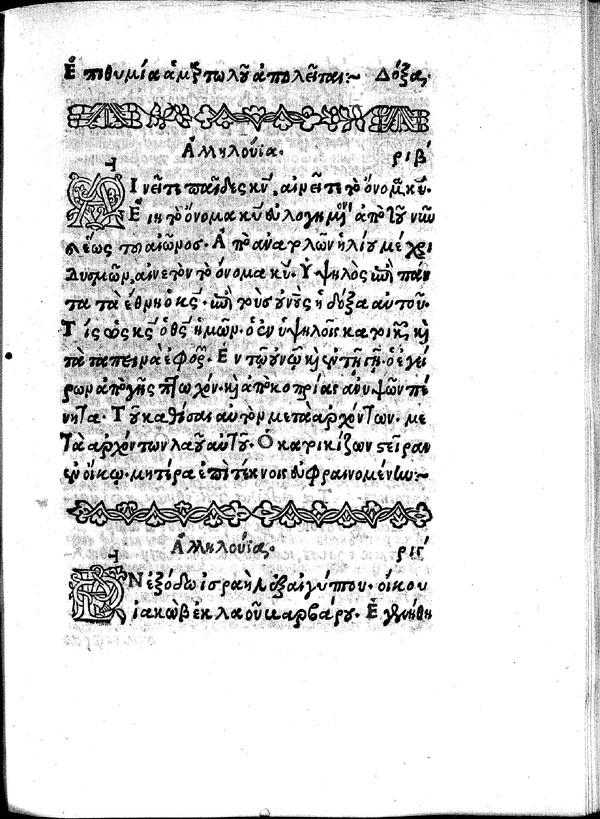 Ἐπιθυμία ἁμΣτωλοῦ ἀπολεῖται:~ Δόξα.
Ἀλληλούϊα.
ριβ΄
Αἰνεῖτε παῖδες κν, αἰνεῖτε τὸ ὄνομα κυ.
Εἴη τὸ ὄνομα κυ εὐλογημον ἀπὸ τοῦ νῦν
κ ἕως τοῦ αἰῶνος. Ἀπὸ ἀνατολῶν ἡλίου μέχρι
δυσμῶν, αἰνετὸν τὸ ὄνομα κυ. Ὑψηλὸς ἐπὶ πάν
τα τὰ ἔθνη ὁ κς. ἐπὶ τοὺς οὐνοὺς ἡ δόξα αὐτοῦ.
Τίς ὡς κς ὁ θς ἡμῶν. ὁ ἐν ὑψηλοῖς κατοικῶν, καὶ
τὰ ταπεινὰ ἐφορῶν. Ἐν τῷ οὐνῷ καὶ ἐν τῇ γῇ. ὁ ἐγεί
ρων ἀπὸ γῆς πτωχόν. καὶ ἀπὸ κοπρίας ἀνυψῶν πέ
νητα. Τοῦ καθίσαι αὐτὸν μετὰ ἀρχόντων. με
τὰ ἀρχόντων λαοῦ αὐτοῦ. Ὁ κατοικίζων στεῖραν
ἐν οἴκῳ. μητέρα ἐπὶ τέκνοις εὐφραινομένην:~
Ἀλληλούϊα.
ριγ΄
Ἐν ἐξόδῳ ἰσραὴλ ἐξ αἰγύπτου. οἴκου
ἰακὼβ ἐκ λαοῦ βαρβάρου. Ἐγενήθη